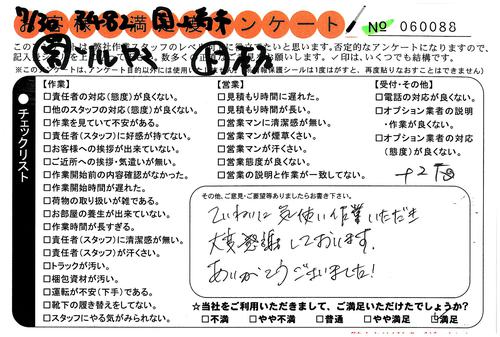 お客様満足度アンケート
No 060088
このアンケートは、弊社作業スタッフのレベル
に役立てたいと思います。否定的なアンケートになりますので、
※このアンケートは、アンケート目的以外には使用いたしません
【作業】
□責任者の対応(態度)が良くない。
□他のスタッフの対応(態度)が良くない。
□作業を見ていて不安がある。
□責任者(スタッフ)に好感が持てない。
□お客様への挨拶が出来ていない。
□ご近所への挨拶・気遣いが無い。
□作業開始前の内容確認がなかった。
□作業開始時間が遅れた。
□荷物の取り扱いが雑である。
□お部屋の養生が出来ていない。
□作業時間が長すぎる。
□責任者(スタッフ)に清潔感が無い。
□責任者(スタッフ)が汗くさい。
□トラックが汚い。
□梱包資材が汚い。
□運転が不安(下手)である。
□靴下の履き替えをしてない。
□スタッフにやる気がみられない。
【営業】
□見積もり時間に遅れた。
□見積もり時間が長い。
□営業マンに清潔感が無い。
□営業マンが煙草くさい。
□営業マンが汗くさい。
□営業態度が良くない。
□営業の説明と作業が一致してない。
【受付・その他】
□電話の対応が良くない。
□オプション業者の説明
・作業が良くない。
□オプション業者の対応
(態度)が良くない。
●チェックリスト
その他、ご意見・ご要望等ありましたらお書き下さい。
ていねいに気使い作業いただき
大変感謝しております。
ありがとうございました!
★当社をご利用いただきまして、ご満足いただけたでしょうか?
□不満 □やや不満 □普通 □やや満足 □満足